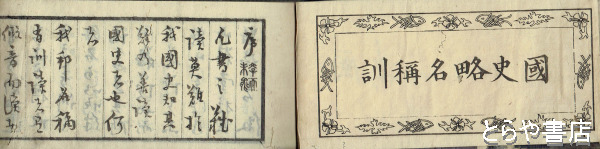 國史略名稱訓
序
凡書之難
讀莫難於
我國史知其
難而善讀
國史者也何
者
我邦名稱
有訓讀又有
假音而讀
とらや書店